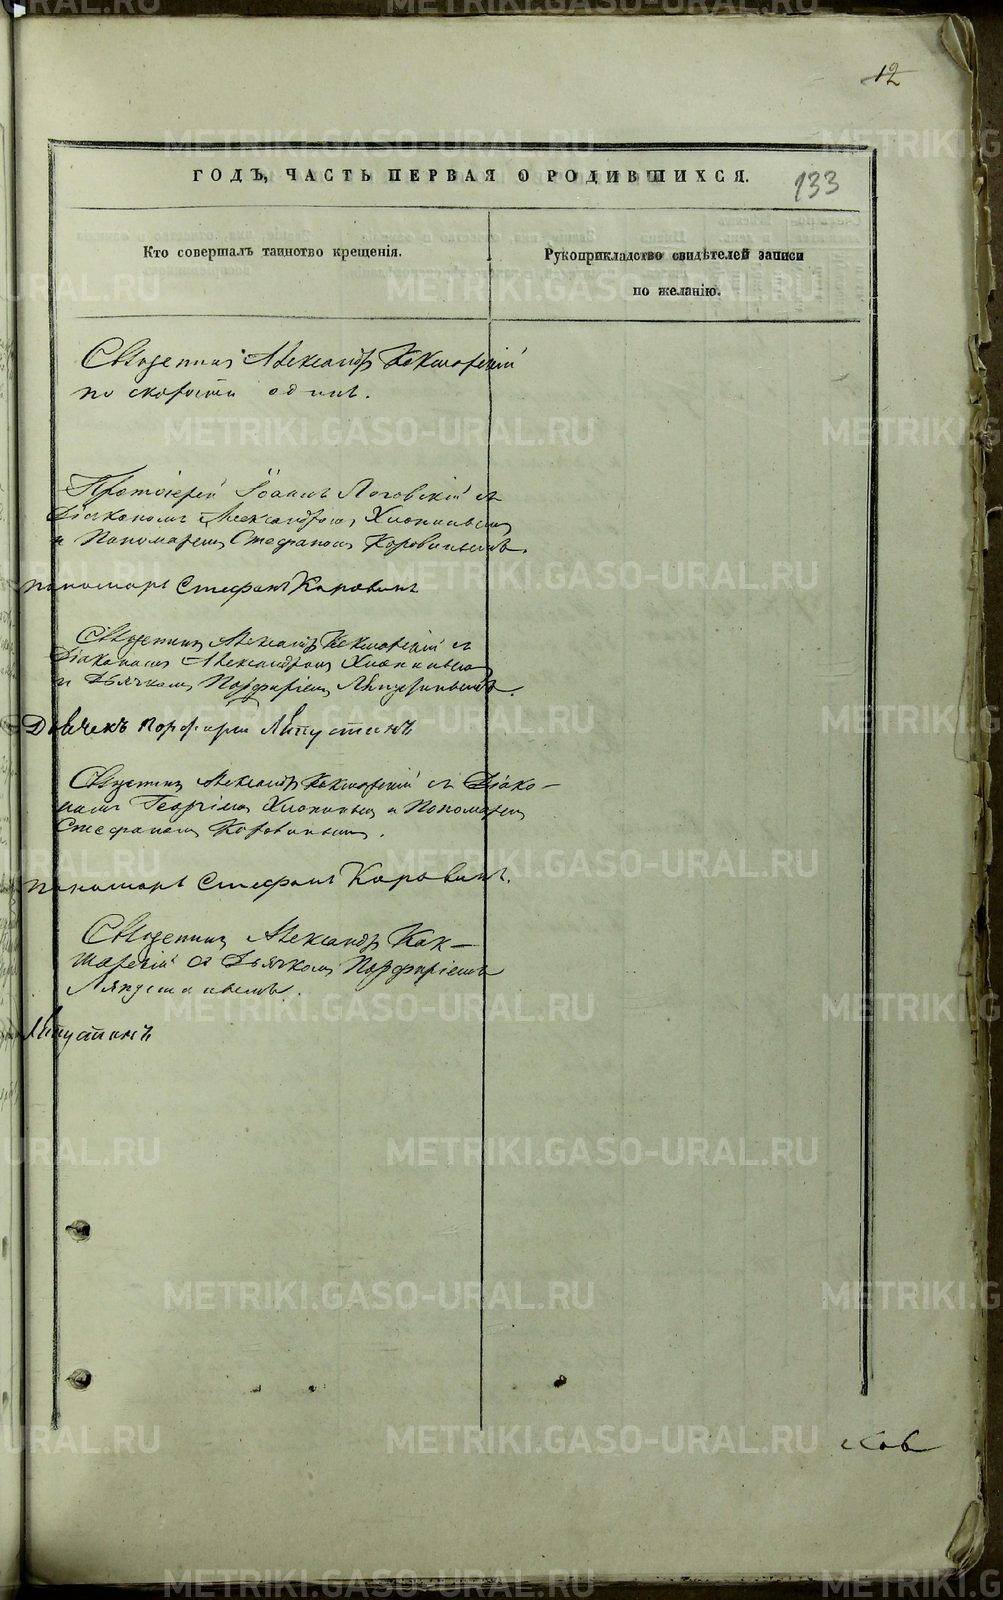 12
ГОДЪ, ЧАСТЬ ПЕРВАЯ О РОДИВШИХСЯ.
133
Кто совершалъ таинство крещенія.
Рукоприкладство свидѣтелей записи
по желанію.
Священникъ Александръ Кокшарскій
по скорости одинъ.
Протоіерей Іоаннъ Логовскій съ
Діакономъ Александромъ Хлопинымъ
и Пономаремъ Стефаномъ Коровинымъ.
пономарь Стефанъ Коровинъ
Священникъ Александръ Кокшарскій съ
Діакономъ Александромъ Хлопинымъ
и Дьячкомъ Порфиріемъ Ляпустинымъ.
Дьячекъ Порфирій Ляпустинъ
Священникъ Александръ Кокшарскій съ Діако-
номъ Георгіемъ Хлопинымъ и Пономаремъ
Стефаномъ Коровинымъ.
пономарь Стефанъ Коровинъ.
Священникъ Александръ Кок-
шарскій съ Дьячкомъ Порфиріемъ
Ляпустинымъ.
Ляпустинъ
METRIKI.GASO-URAL.RU